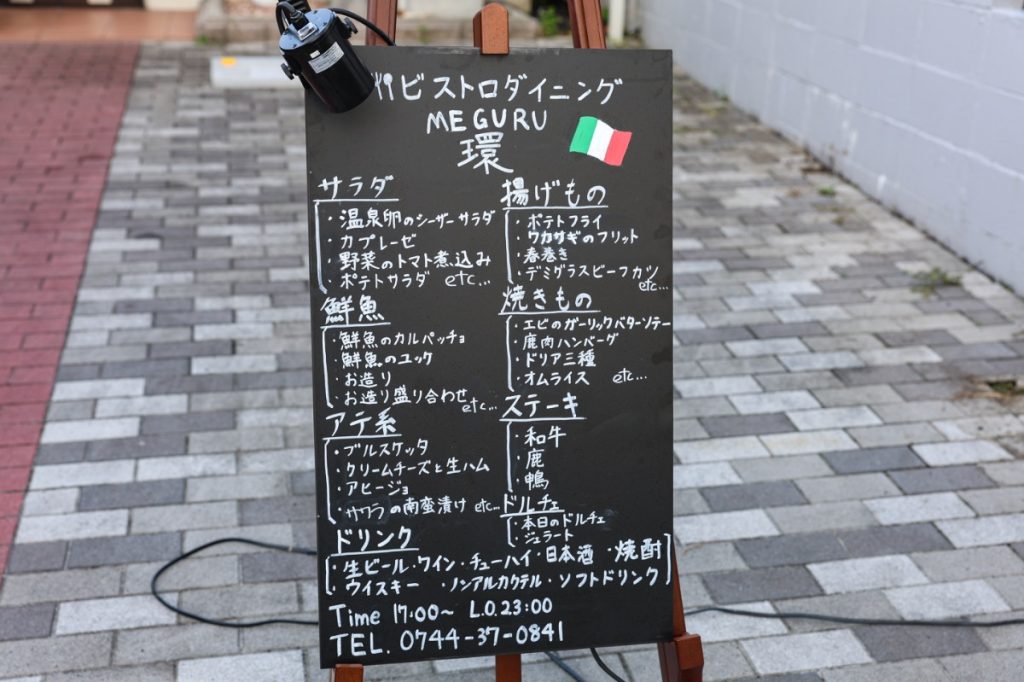 ビストロダイニング
MEGURU
環
サラダ
・温泉卵のシーザーサラダ
・カプレーゼ
・野菜のトマト煮込み
・ポテトサラダ etc...
鮮魚
・鮮魚のカルパッチョ
・鮮魚のユッケ
・お造り
・お造り盛り合わせ etc...
アテ系
・ブルスケッタ
・クリームチーズと生ハム
・アヒージョ
・サワラの南蛮漬け etc...
揚げもの
・ポテトフライ
・ワカサギのフリット
・春巻き
・デミグラスビーフカツ etc...
焼きもの
・エビのガーリックバターソテー
・鹿肉ハンバーグ
・ドリア三種
・オムライス etc...
ステーキ
・和牛
・鹿
・鴨
ドルチェ
・本日のドルチェ
・ジェラート
ドリンク
・生ビール・ワイン・チューハイ・日本酒・焼酎
・ウイスキー ・ノンアルカクテル・ソフトドリンク
Time 17:00～ L.O.23:00
TEL. 0744-37-0841